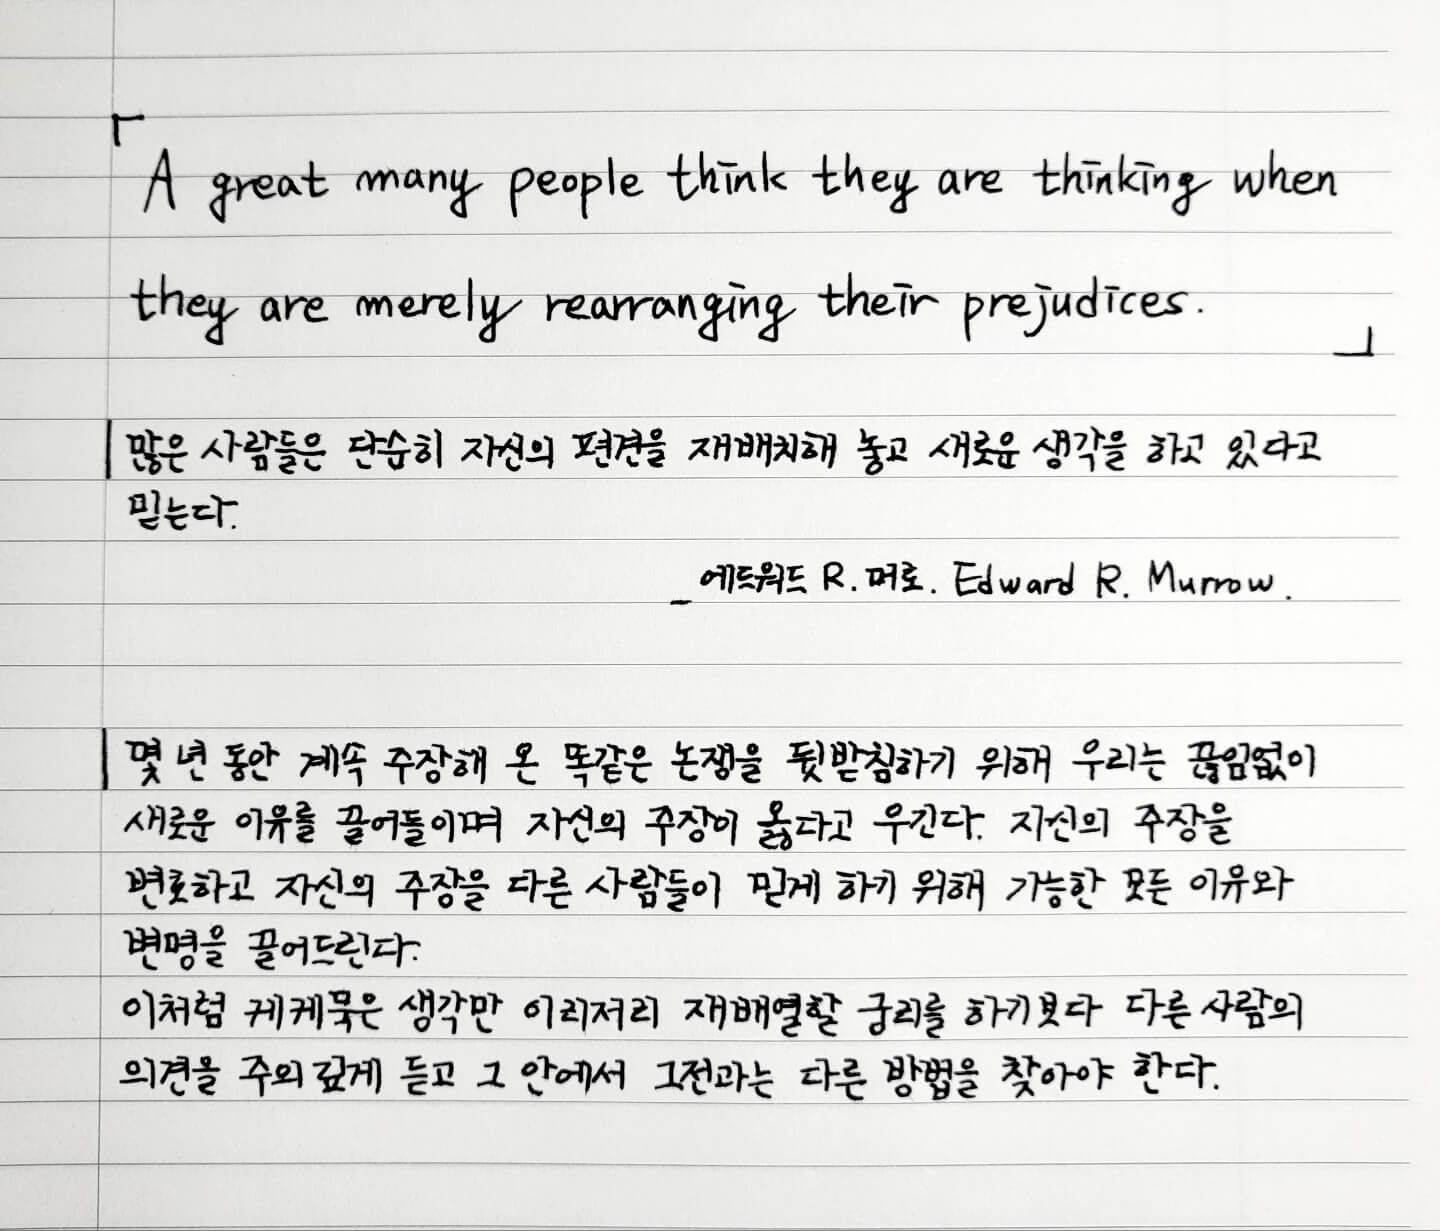 「A great many people think they are thinking when
they are merely rearranging their prejudices.」
많은 사람들은 단순히 자신의 편견을 재배치해 놓고 새로운 생각을 하고 있다고
믿는다.
_ 에드워드 R. 머로. Edward R. Murrow.
몇 년 동안 계속 주장해 온 똑같은 논쟁을 뒷받침하기 위해 우리는 끊임없이
새로운 이유를 끌어들이며 자신의 주장이 옳다고 우긴다. 자신의 주장을
변호하고 자신의 주장을 다른 사람들이 믿게 하기 위해 가능한 모든 이유와
변명을 끌어드린다.
이처럼 케케묵은 생각만 이리저리 재배열할 궁리를 하기보다 다른 사람의
의견을 주의 깊게 듣고 그 안에서 그전과는 다른 방법을 찾아야 한다.